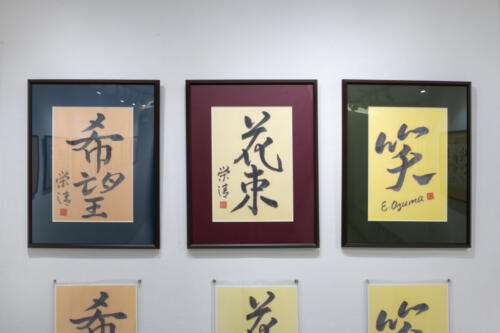 希望
栄清
花束
栄清
笑
E. Ozuma
希
花
笑